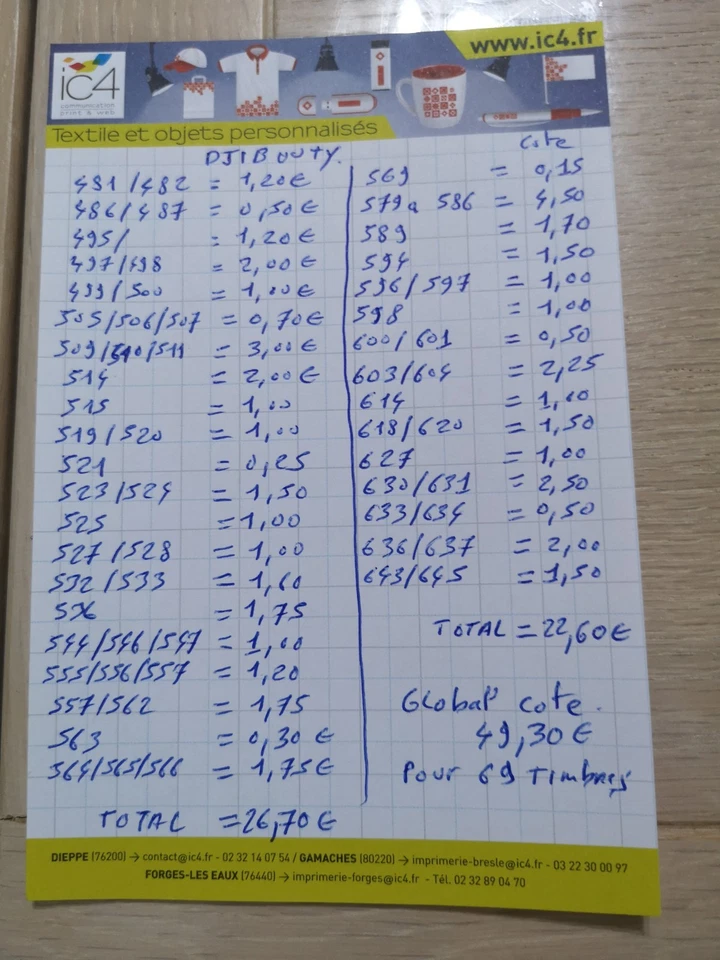 www.ic4.fr
ic4
communication
print & web
Textile et objets personnalisés
DJIBOUTY.
481/482 = 1,20€
486/487 = 0,50€
495/ = 1,20€
497/498 = 2,00€
499/500 = 1,00€
505/506/507 = 0,70€
509/510/511 = 3,00€
514 = 2,00€
515 = 1,00
519/520 = 1,00
521 = 0,25
523/524 = 1,50
525 = 1,00
527/528 = 1,00
532/533 = 1,60
= 1,75
544/546/547 = 1,00
555/556/557 = 1,20
557/562 = 1,75
563 = 0,30€
564/565/566 = 1,75€
TOTAL = 26,70€
Cote
569 = 0,15
579 a 586 = 4,50
589 = 1,70
594 = 1,50
596/597 = 1,00
598 = 1,00
600/601 = 0,50
603/604 = 2,25
614 = 1,00
618/620 = 1,50
627 = 1,00
630/631 = 2,50
633/634 = 0,50
636/637 = 2,00
643/645 = 1,50
TOTAL = 22,60€
Global cote.
49,30€
Pour 69 timbres
DIEPPE (76200) → contact@ic4.fr - 02 32 14 07 54 / GAMACHES (80220) → imprimerie-bresle@ic4.fr - 03 22 30 00 97
FORGES-LES EAUX (76440) → imprimerie-forges@ic4.fr - Tél. 02 32 89 04 70